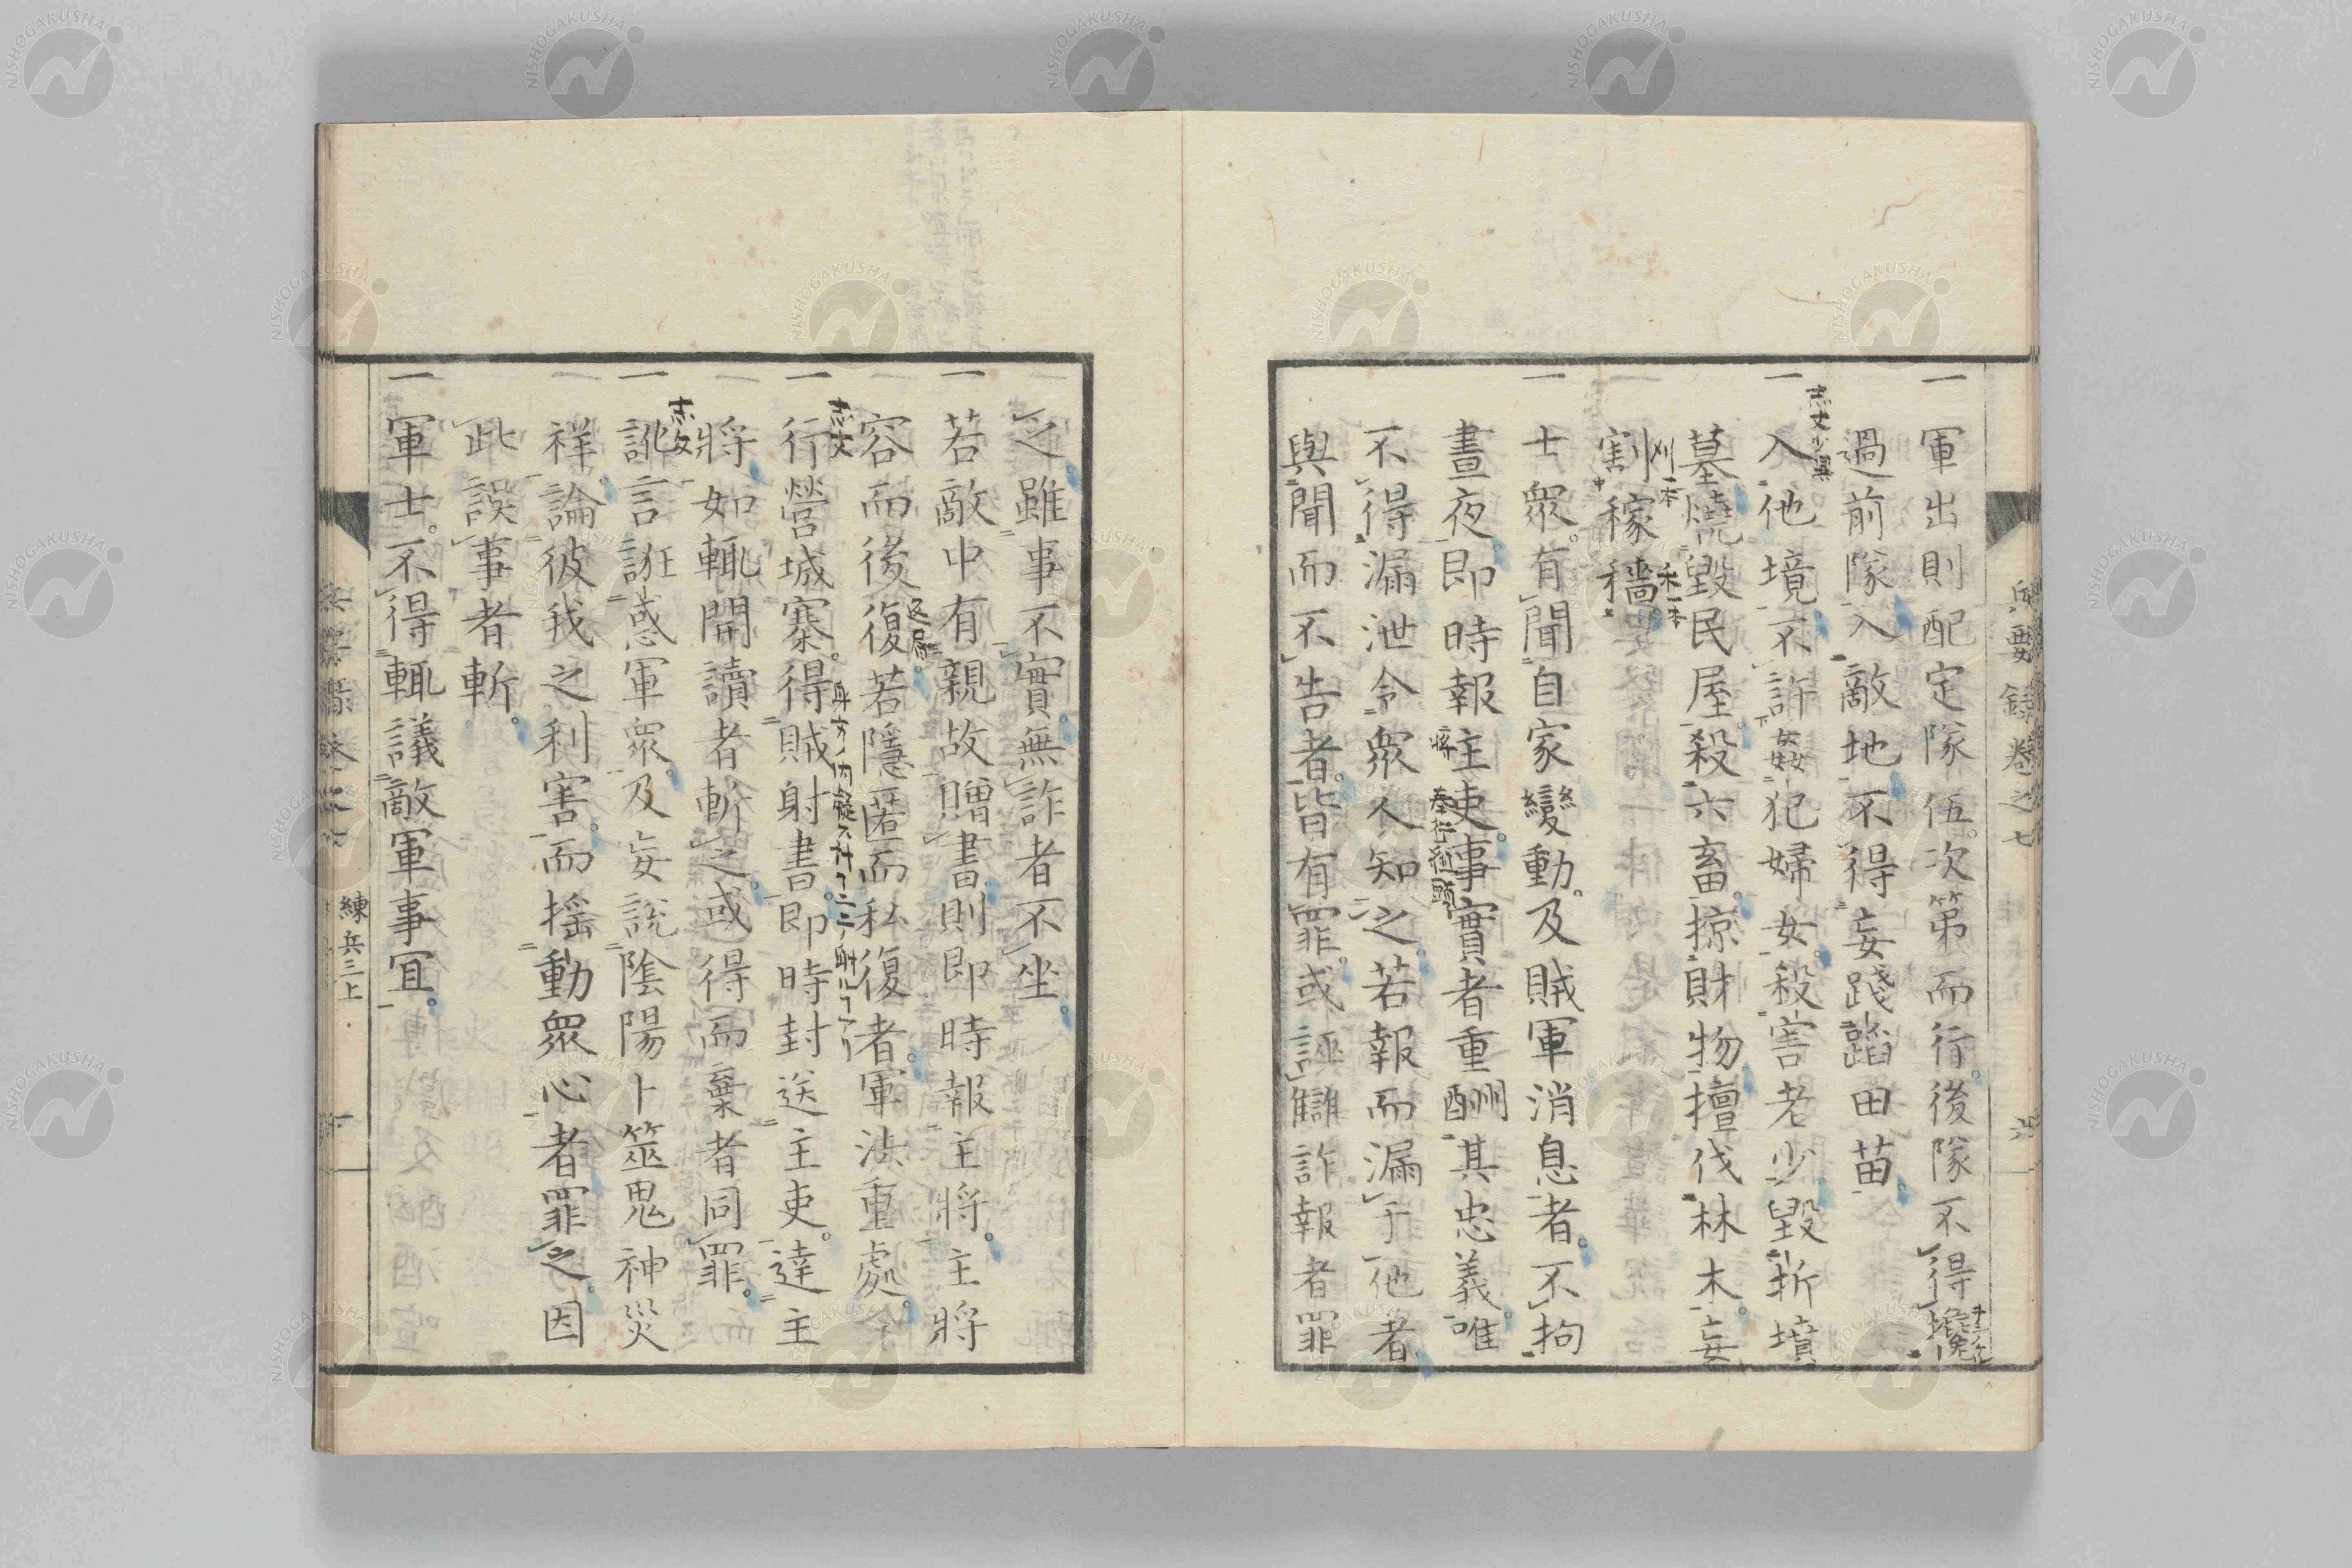 兵要録卷之七
一軍出則配定隊伍。次第而行。後隊不得攙
過前隊入敵地不得妄踐蹈田苗
一入他境不許姦犯婦女殺害老少毀折墳
志文少異
墓燒毀民屋。殺六畜。掠財物擅伐林木。妄
割稼穡。
刈一本
一士衆。有聞自家變動。及賊軍消息者。不拘
晝夜即時報主吏。事實者重酬其忠義。唯
不得漏泄令衆人知之。若報而漏于他者
與聞而不告者。皆有罪。或誣讎詐報者罪
之雖事不實。無詐者不坐。
一若敵中有親故贈書則即時報主將。主將
容而後復若隱匿而私復者。軍法重處。
返局
一行營城寨。得賊射書。即時封送主吏。達主
志文
將如輒開讀者斬之。或得而棄者同罪。
一訛言誑惑軍衆。及妄説陰陽卜筮鬼神災
志文
祥。論彼我之利害。而揺動衆心者罪之。因
此誤事者斬。
一軍士。不得輒議敵軍事宜。
練兵三上